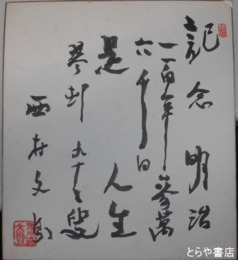 記念明治
一百年参萬
六千日
是人生
琴邨九十叟
西村文則
とらや書店